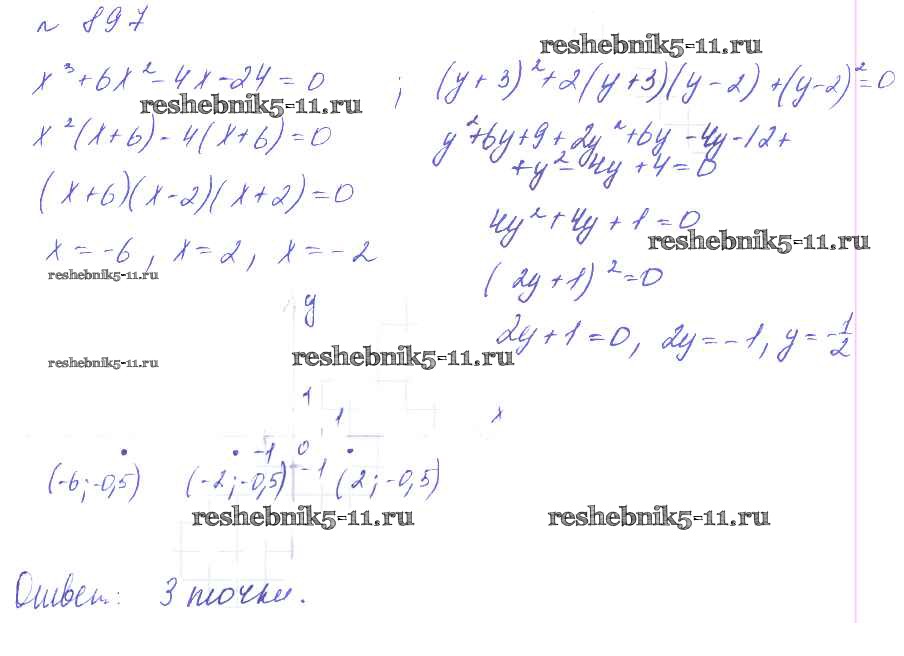 № 897
reshebnik5-11.ru
x³ + 6x² - 4x - 24 = 0 ; (y + 3)² + 2(y + 3)(y - 2) + (y - 2)² = 0
reshebnik5-11.ru
x²(x + 6) - 4(x + 6) = 0
y² + 6y + 9 + 2y² + 6y - 4y - 12 +
+ y² - 4y + 4 = 0
(x + 6)(x - 2)(x + 2) = 0
4y² + 4y + 1 = 0
reshebnik5-11.ru
x = -6, x = 2, x = -2
reshebnik5-11.ru
(2y + 1)² = 0
y
2y + 1 = 0, 2y = -1, y = -1/2
reshebnik5-11.ru
reshebnik5-11.ru
1
1
x
-1 0
(-6; -0,5) (-2; -0,5) -1 (2; -0,5)
reshebnik5-11.ru
reshebnik5-11.ru
Ответ: 3 точки.